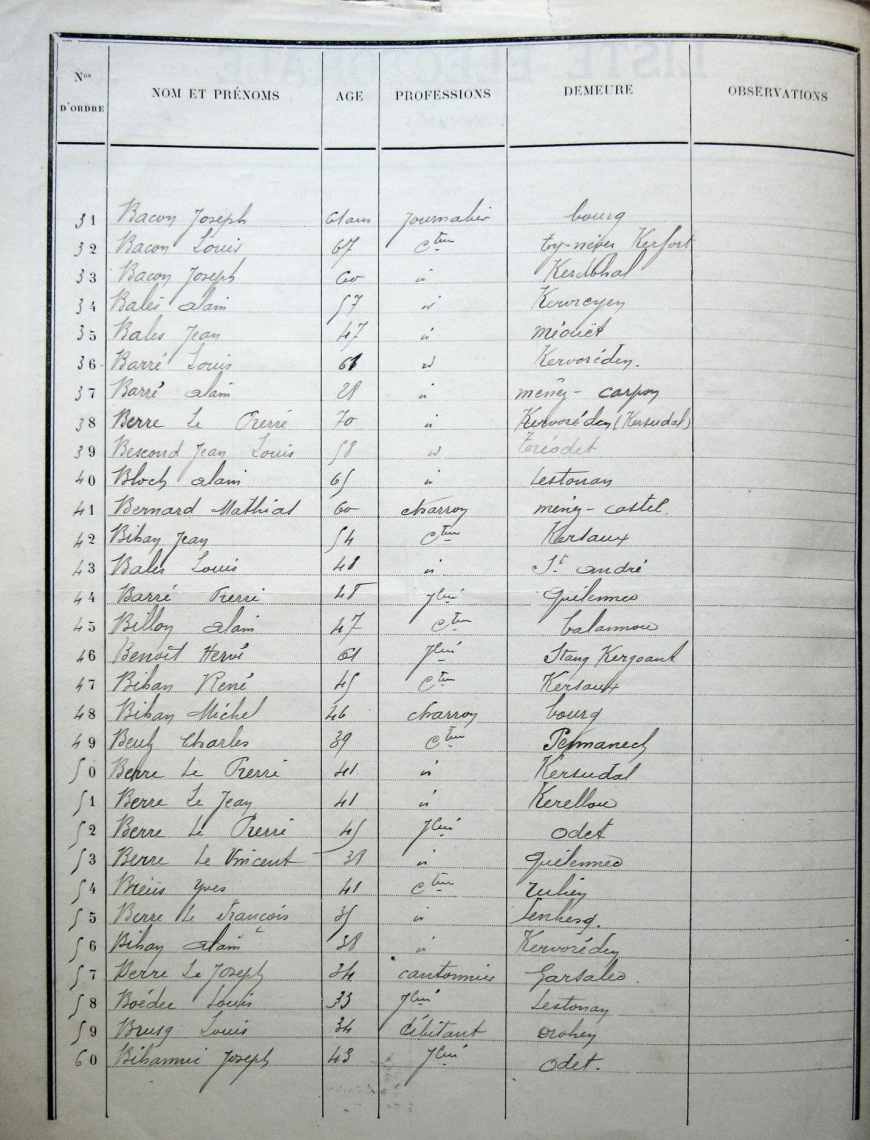 Nos D'ORDRE NOM ET PRÉNOMS AGE PROFESSIONS DEMEURE OBSERVATIONS
31 Bacon Joseph 61 ans journalier bourg
32 Bacon Louis 67 Cteur ty-niver Kerfort
33 Bacon Joseph 60 id Kerdohal
34 Balès alain 57 id Kervreyen
35 Balès Jean 47 id méouët
36 Barré Louis 61 id Kervoréden.
37 Barré alain 28 id ménez-carpon
38 Berre Le Pierre 70 id Kervoréden (Kersudal)
39 Bescond Jean Louis 58 id Tréodet
40 Bloch alain 65 id Lestonan
41 Bernard Mathias 60 charron ménez-castel.
42 Bihan Jean 54 Cteur Kersaux
43 Balès Louis 48 id St andré
44 Barré Pierre 48 Jlier quélennec
45 Billon alain 47 Cteur
46 Benoît Hervé 61 Jlier Stang Kergoant
47 Bihan René 45 Cteur Kersaux
48 Bihan Michel 46 charron bourg
49 Beuz Charles 39 Cteur Pennanech
50 Berre Le Pierre 41 id Kersudal
51 Berre Le Jean 41 id Kerellou
52 Berre Le Pierre 45 Jlier Odet
53 Berre Le Vincent 38 id quélennec
54 Breüs Yves 41 Cteur rulien
55 Berre Le François 35 id Lenhesq.
56 Bihan alain 38 id Kervoréden
57 Berre Le Joseph 34 cantonnier Garsalec.
58 Boédec Louis 33 Jlier Lestonan
59 Brusq Louis 34 débitant
60 Bihannic Joseph 43 Jlier Odet.